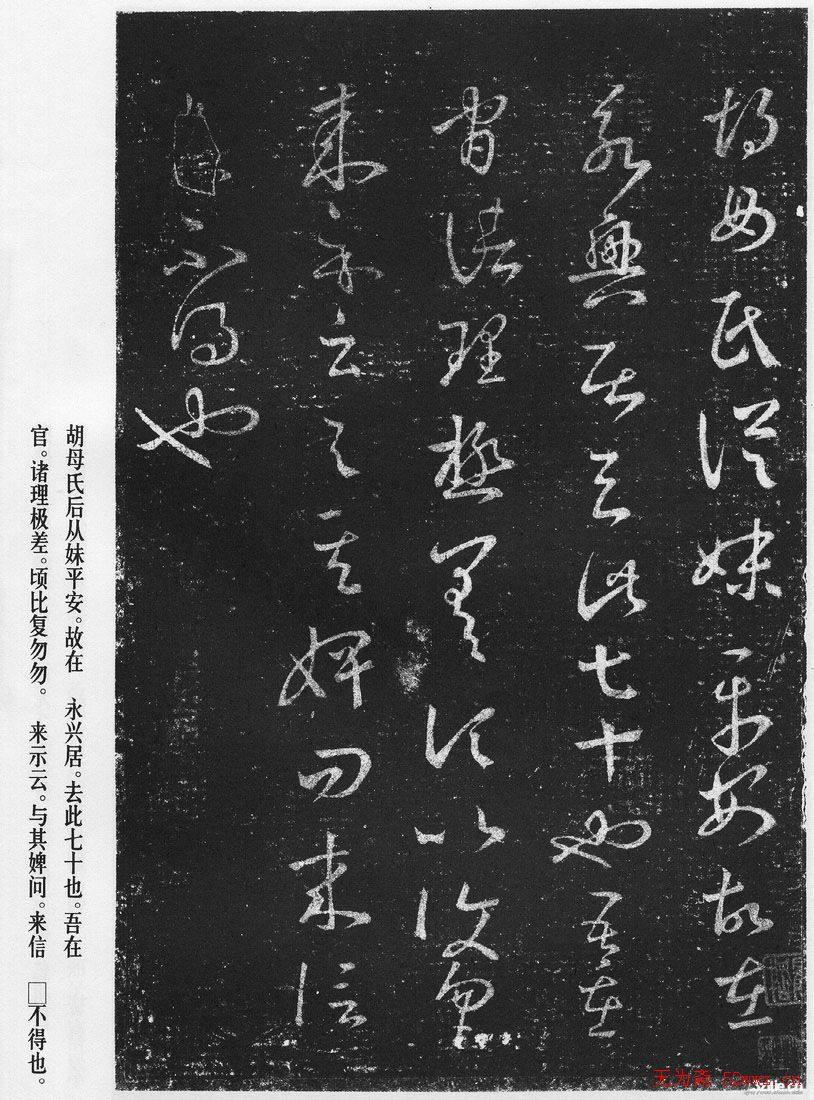 胡母氏從妹平安故在
永興居去此七十也吾在
官諸理極差頃比復勿勿
來示云與其婢問來信
不得也
胡母氏后从妹平安。故在 永兴居。去此七十也。吾在
官。诸理极差。顷比复勿勿。 来示云。与其婢问。来信 □不得也。